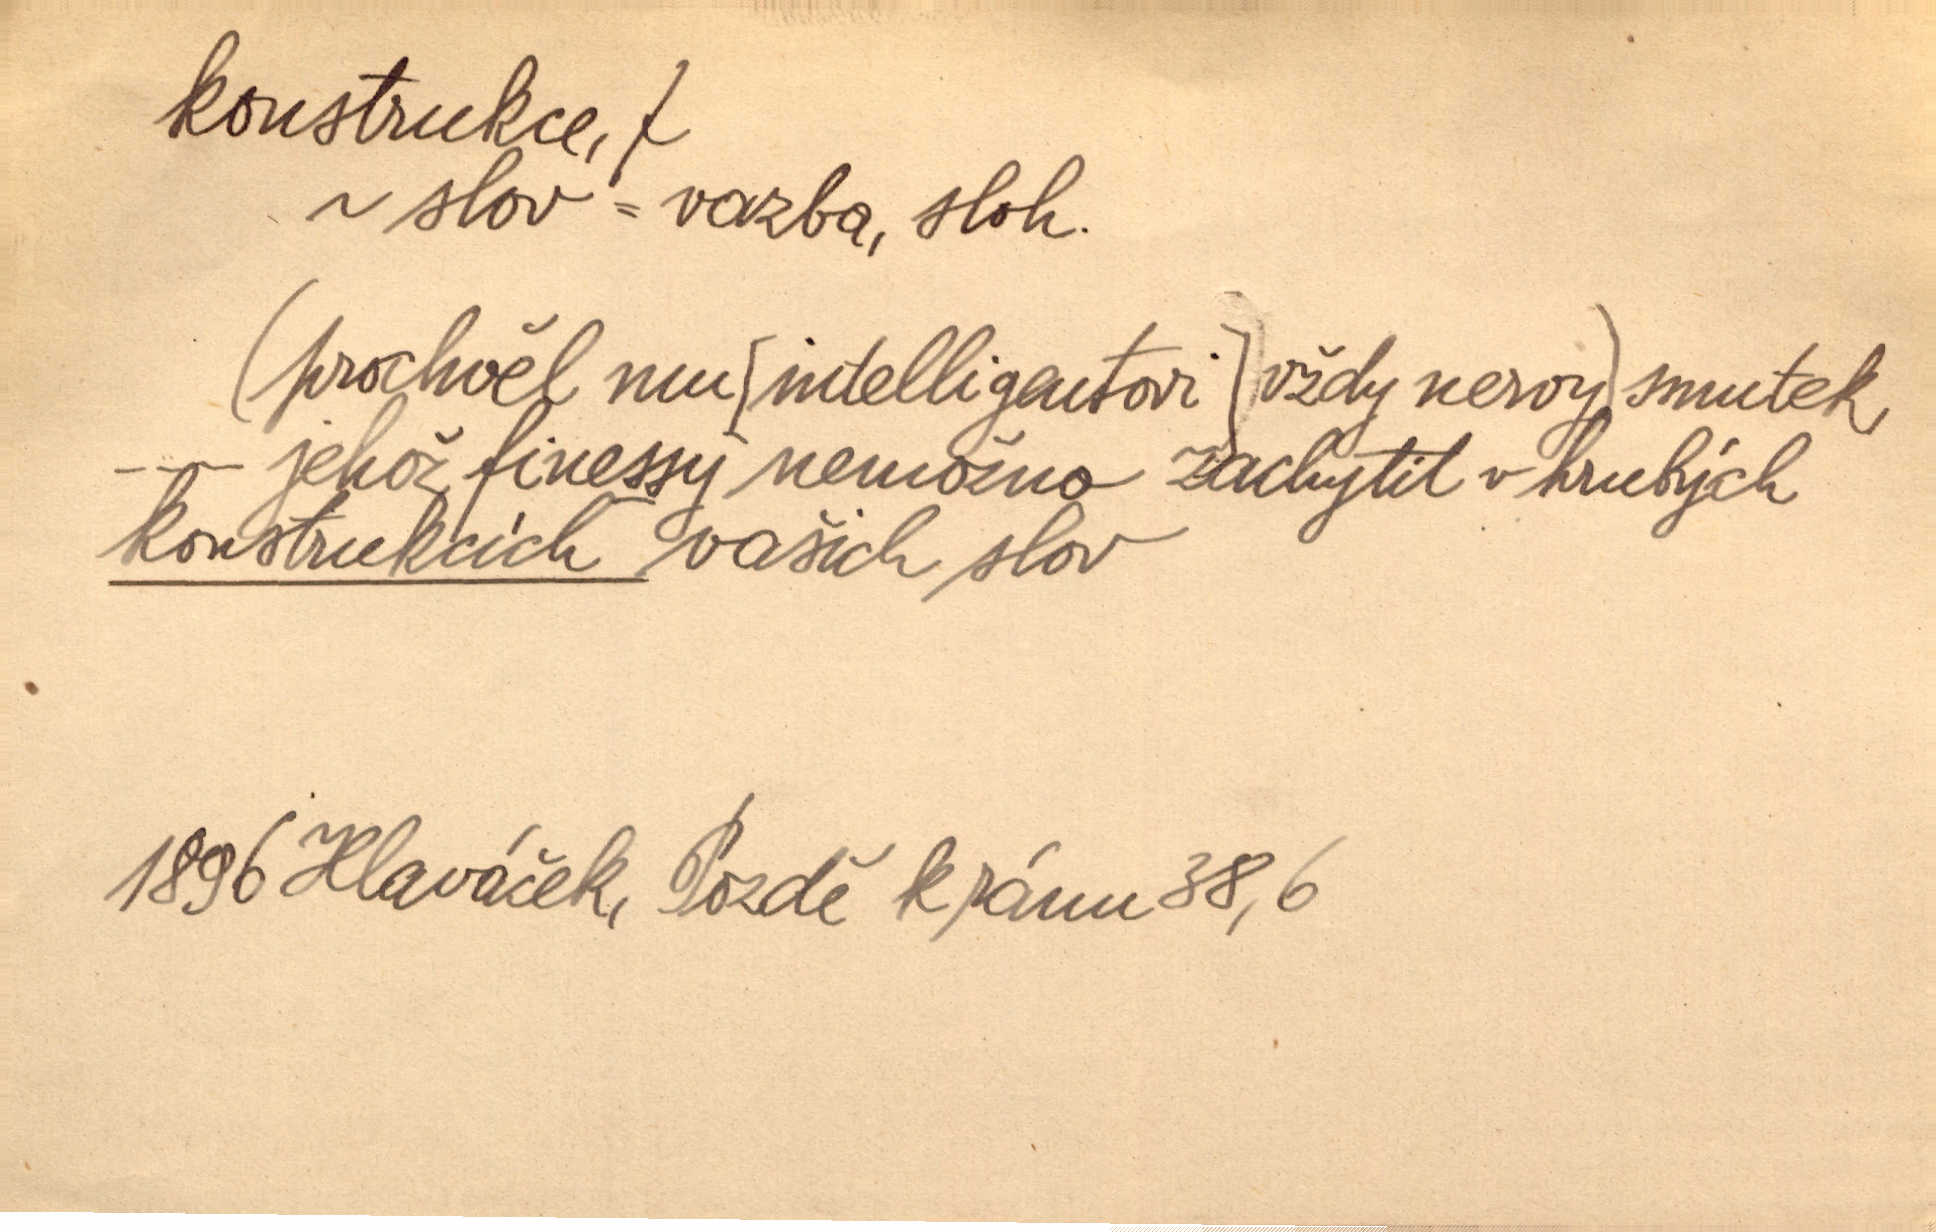 konstrukce, f
~ slov = vazba, sloh.
(prochvěl mu [intelligentovi] vždy nervy) smutek,
--- jehož finessy nemožno zachytit v hrubých
konstrukcích vašich slov
1896 Hlaváček, Pozdě k ránu 38,6